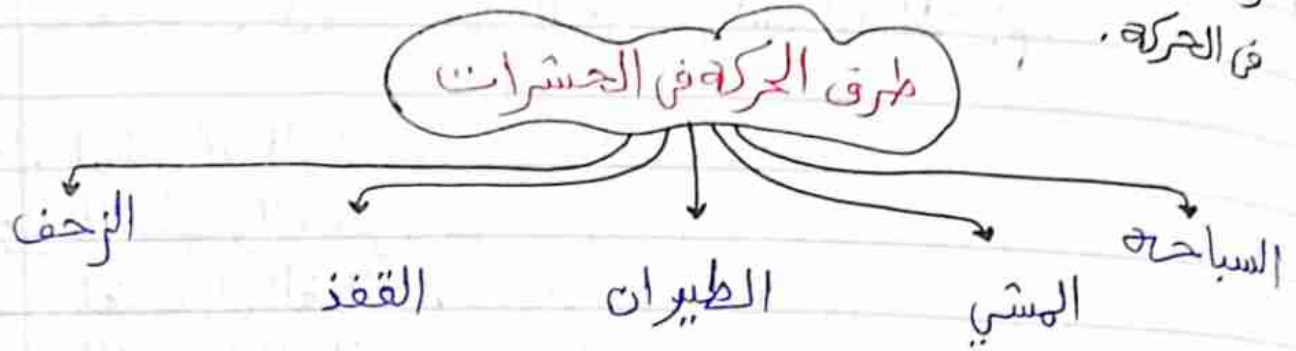 فى الحركه.
طرق الحركه فى الحشرات
السباحه
المشي
الطيران
القفذ
الزحف